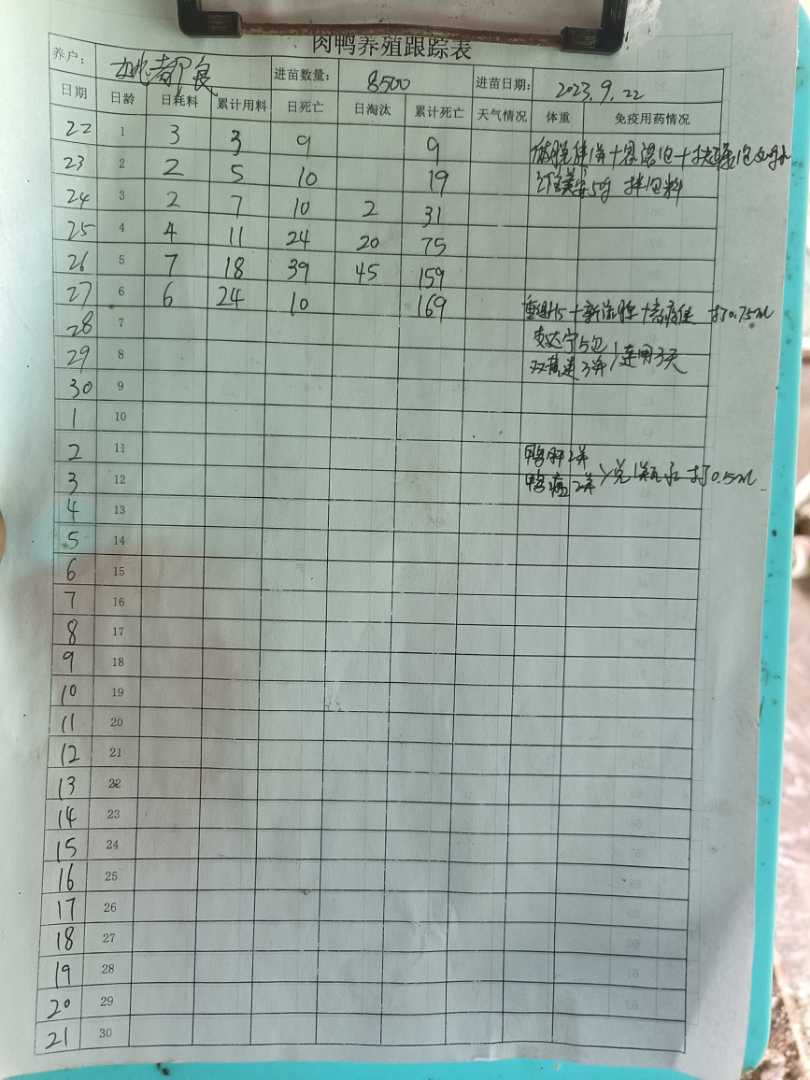 肉鸭养殖跟踪表
养户: 进苗数量: 8500 进苗日期: 2023.9.22
日期 日龄 日耗料 累计用料 日死亡 日淘汰 累计死亡 天气情况 体重 免疫用药情况
22 1 3 3 9 9
23 2 2 5 10 19 5包 拌包料
24 3 2 7 10 2 31
25 4 4 11 24 20 75
26 5 7 18 39 45 159
27 6 6 24 10 169 重组H5+新流腺+ 打0.75ml
28 7 5包
29 8 3瓶 连用3天
30 9
1 10
2 11 鸭肝2瓶
3 12 鸭瘟2瓶 打0.5ml
4 13
5 14
6 15
7 16
8 17
9 18
10 19
11 20
12 21
13 22
14 23
15 24
16 25
17 26
18 27
19 28
20 29
21 30